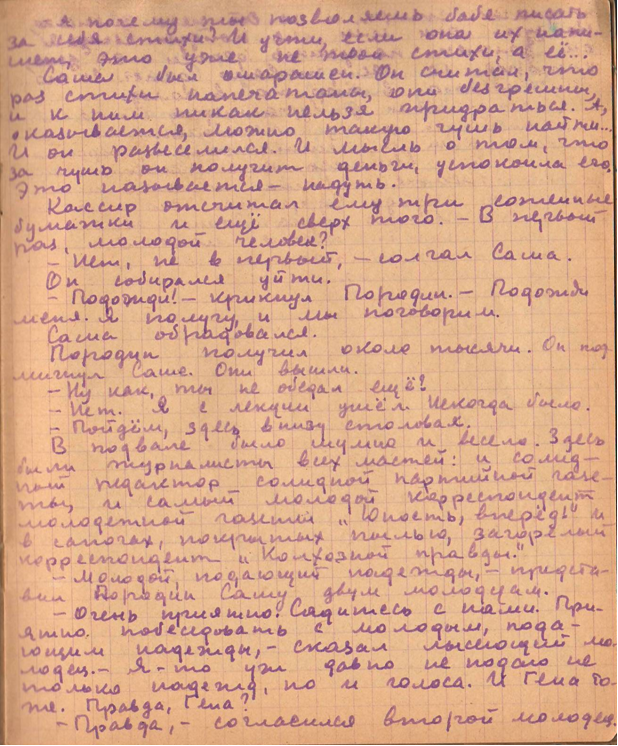 А почему ты позволяешь бабе писать
за себя стихи? И учти, если она их напи-
шет, это уже не твои стихи, а её...
Саша был ошарашен. Он считал, что
раз стихи напечатаны, они безгрешны,
и к ним никак нельзя придраться. А,
оказывается, можно такую чушь найти...
И он развеселился. И мысль о том, что
за чушь он получит деньги, успокоила его.
Это называется – надуть.
Кассир отсчитал ему три сотенные
бумажки и ещё сверх того. – В первый
раз, молодой человек?
– Нет, не в первый, – солгал Саша.
Он собирался уйти.
– Подожди! – крикнул Породин. – Подожди
меня. Я получу, и мы поговорим.
Саша обрадовался.
Породин получил около тысячи. Он под-
мигнул Саше. Они вышли.
– Ну как, ты не обедал ещё?
– Нет. Я с лекции ушёл. Некогда было.
– Пойдём, здесь внизу столовая.
В подвале было шумно и весело. Здесь
были журналисты всех мастей: и солид-
ный редактор солидной партийной газе-
ты, и самый молодой корреспондент
молодежной газеты „Юность, вперёд!" и
в сапогах, покрытых пылью, загорелый
корреспондент „Колхозной правды."
– Молодой, подающий надежды, – предста-
вил Породин Сашу двум молодцам.
– Очень приятно. Садитесь с нами. При-
ятно побеседовать с молодым, пода-
ющим надежды, – сказал лысеющий мо-
лодец. – Я-то уж давно не подаю не
только надежд, но и голоса. И Гена то-
же. Правда, Гена?
– Правда, – согласился второй молодец.